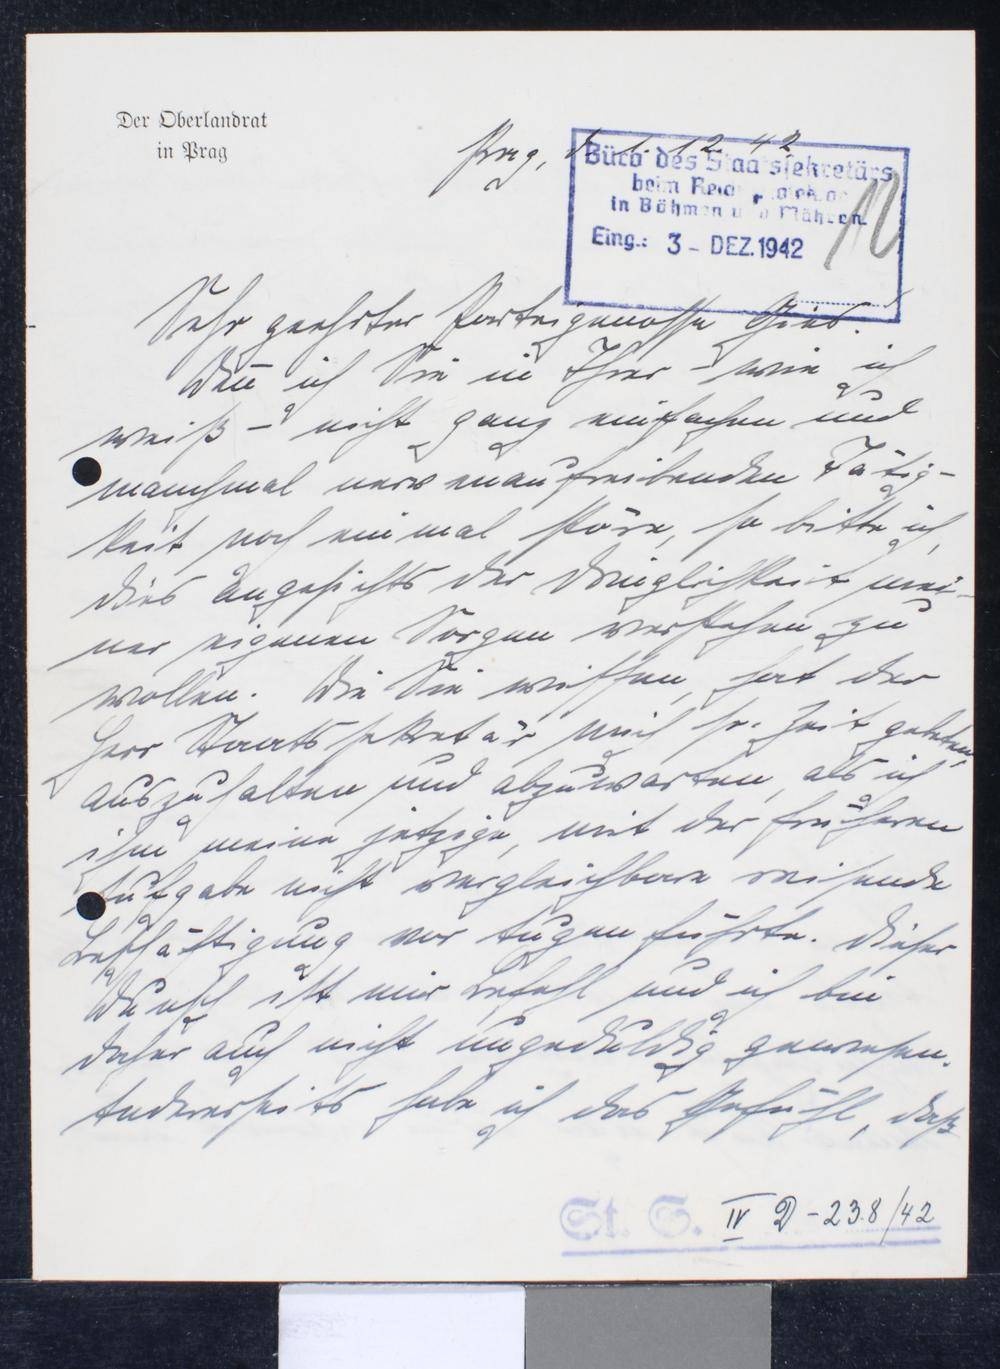 Der Oberlandrat
in Prag
Prag, d. 1. 12. 42
Büro des Staatssekretärs
beim Reichsprotektor
in Böhmen und Mähren
Eing.: 3 - DEZ. 1942
Sehr geehrter Parteigenosse Gies.
Wenn ich Sie in Ihrer – wie ich
weiß – nicht ganz einfachen und
manchmal nervenaufreibenden Tätig-
keit noch einmal störe, so bitte ich,
dies angesichts der Dringlichkeit mei-
ner eigenen Sorgen verstehen zu
wollen. Wie Sie wissen, hat der
Herr Staatssekretär mich s. Zeit gebeten,
auszuhalten und abzuwarten, als ich
ihm meine jetzige, mit der früheren
Aufgabe nicht vergleichbare
Beschäftigung vor Augen führte. Dieser
Wunsch ist mir Befehl und ich bin
daher auch nicht ungeduldig gewesen.
Andererseits habe ich das Gefühl, daß
St. S. IV D - 238/42